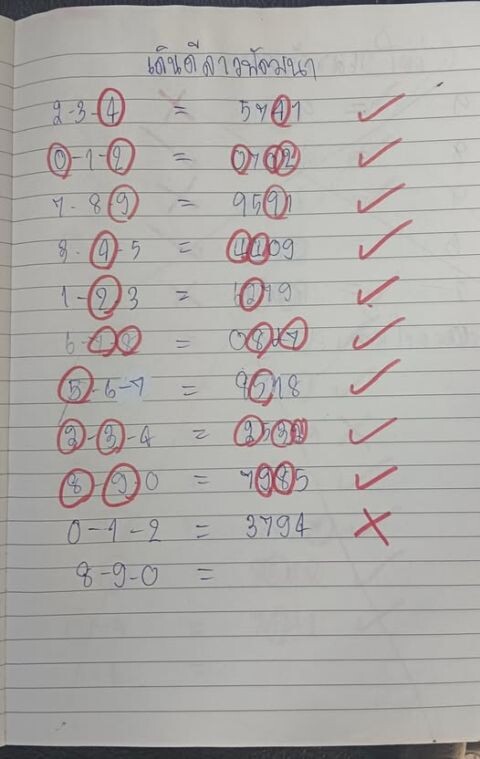 เดินดีลาวพัฒนา
2-3-4 = 5741 ✓
0-1-2 = 0702 ✓
7-8-9 = 9591 ✓
3-4-5 = 4409 ✓
1-2-3 = 6279 ✓
6-7-8 = ✓
5-6-7 = 9578 ✓
2-3-4 = ✓
8-9-0 = 7985 ✓
0-1-2 = 3794 ✗
8-9-0 =